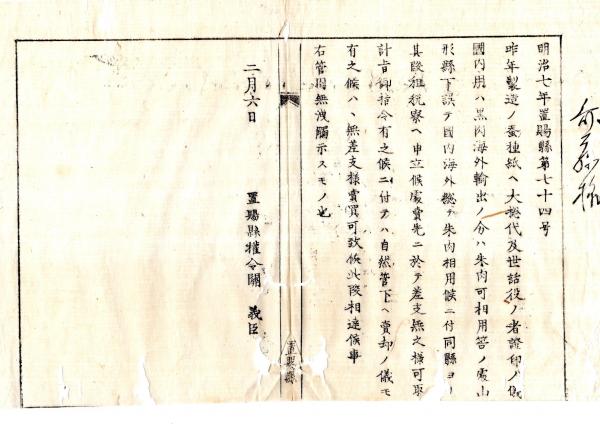 明治七年置賜縣第七十四号
昨年製造ノ蚕種紙ヘ大惣代及世話役ノ者證印ノ儀
國内用ハ黒肉海外輸出ノ分ハ朱肉可相用筈ノ處山
形縣下誤テ國内海外惣テ朱肉相用候ニ付同縣ヨリ
其段租税寮ヘ申立候處賣先ニ於テ差支無之様可取
計旨御指令有之候ニ付テハ自然管下ヘ賣却ノ儀モ
有之候ハヽ無差支様賣買可致候此段相達候事
右管内無洩觸示スモノ也
二月六日
置賜縣權令關 義臣
置賜縣